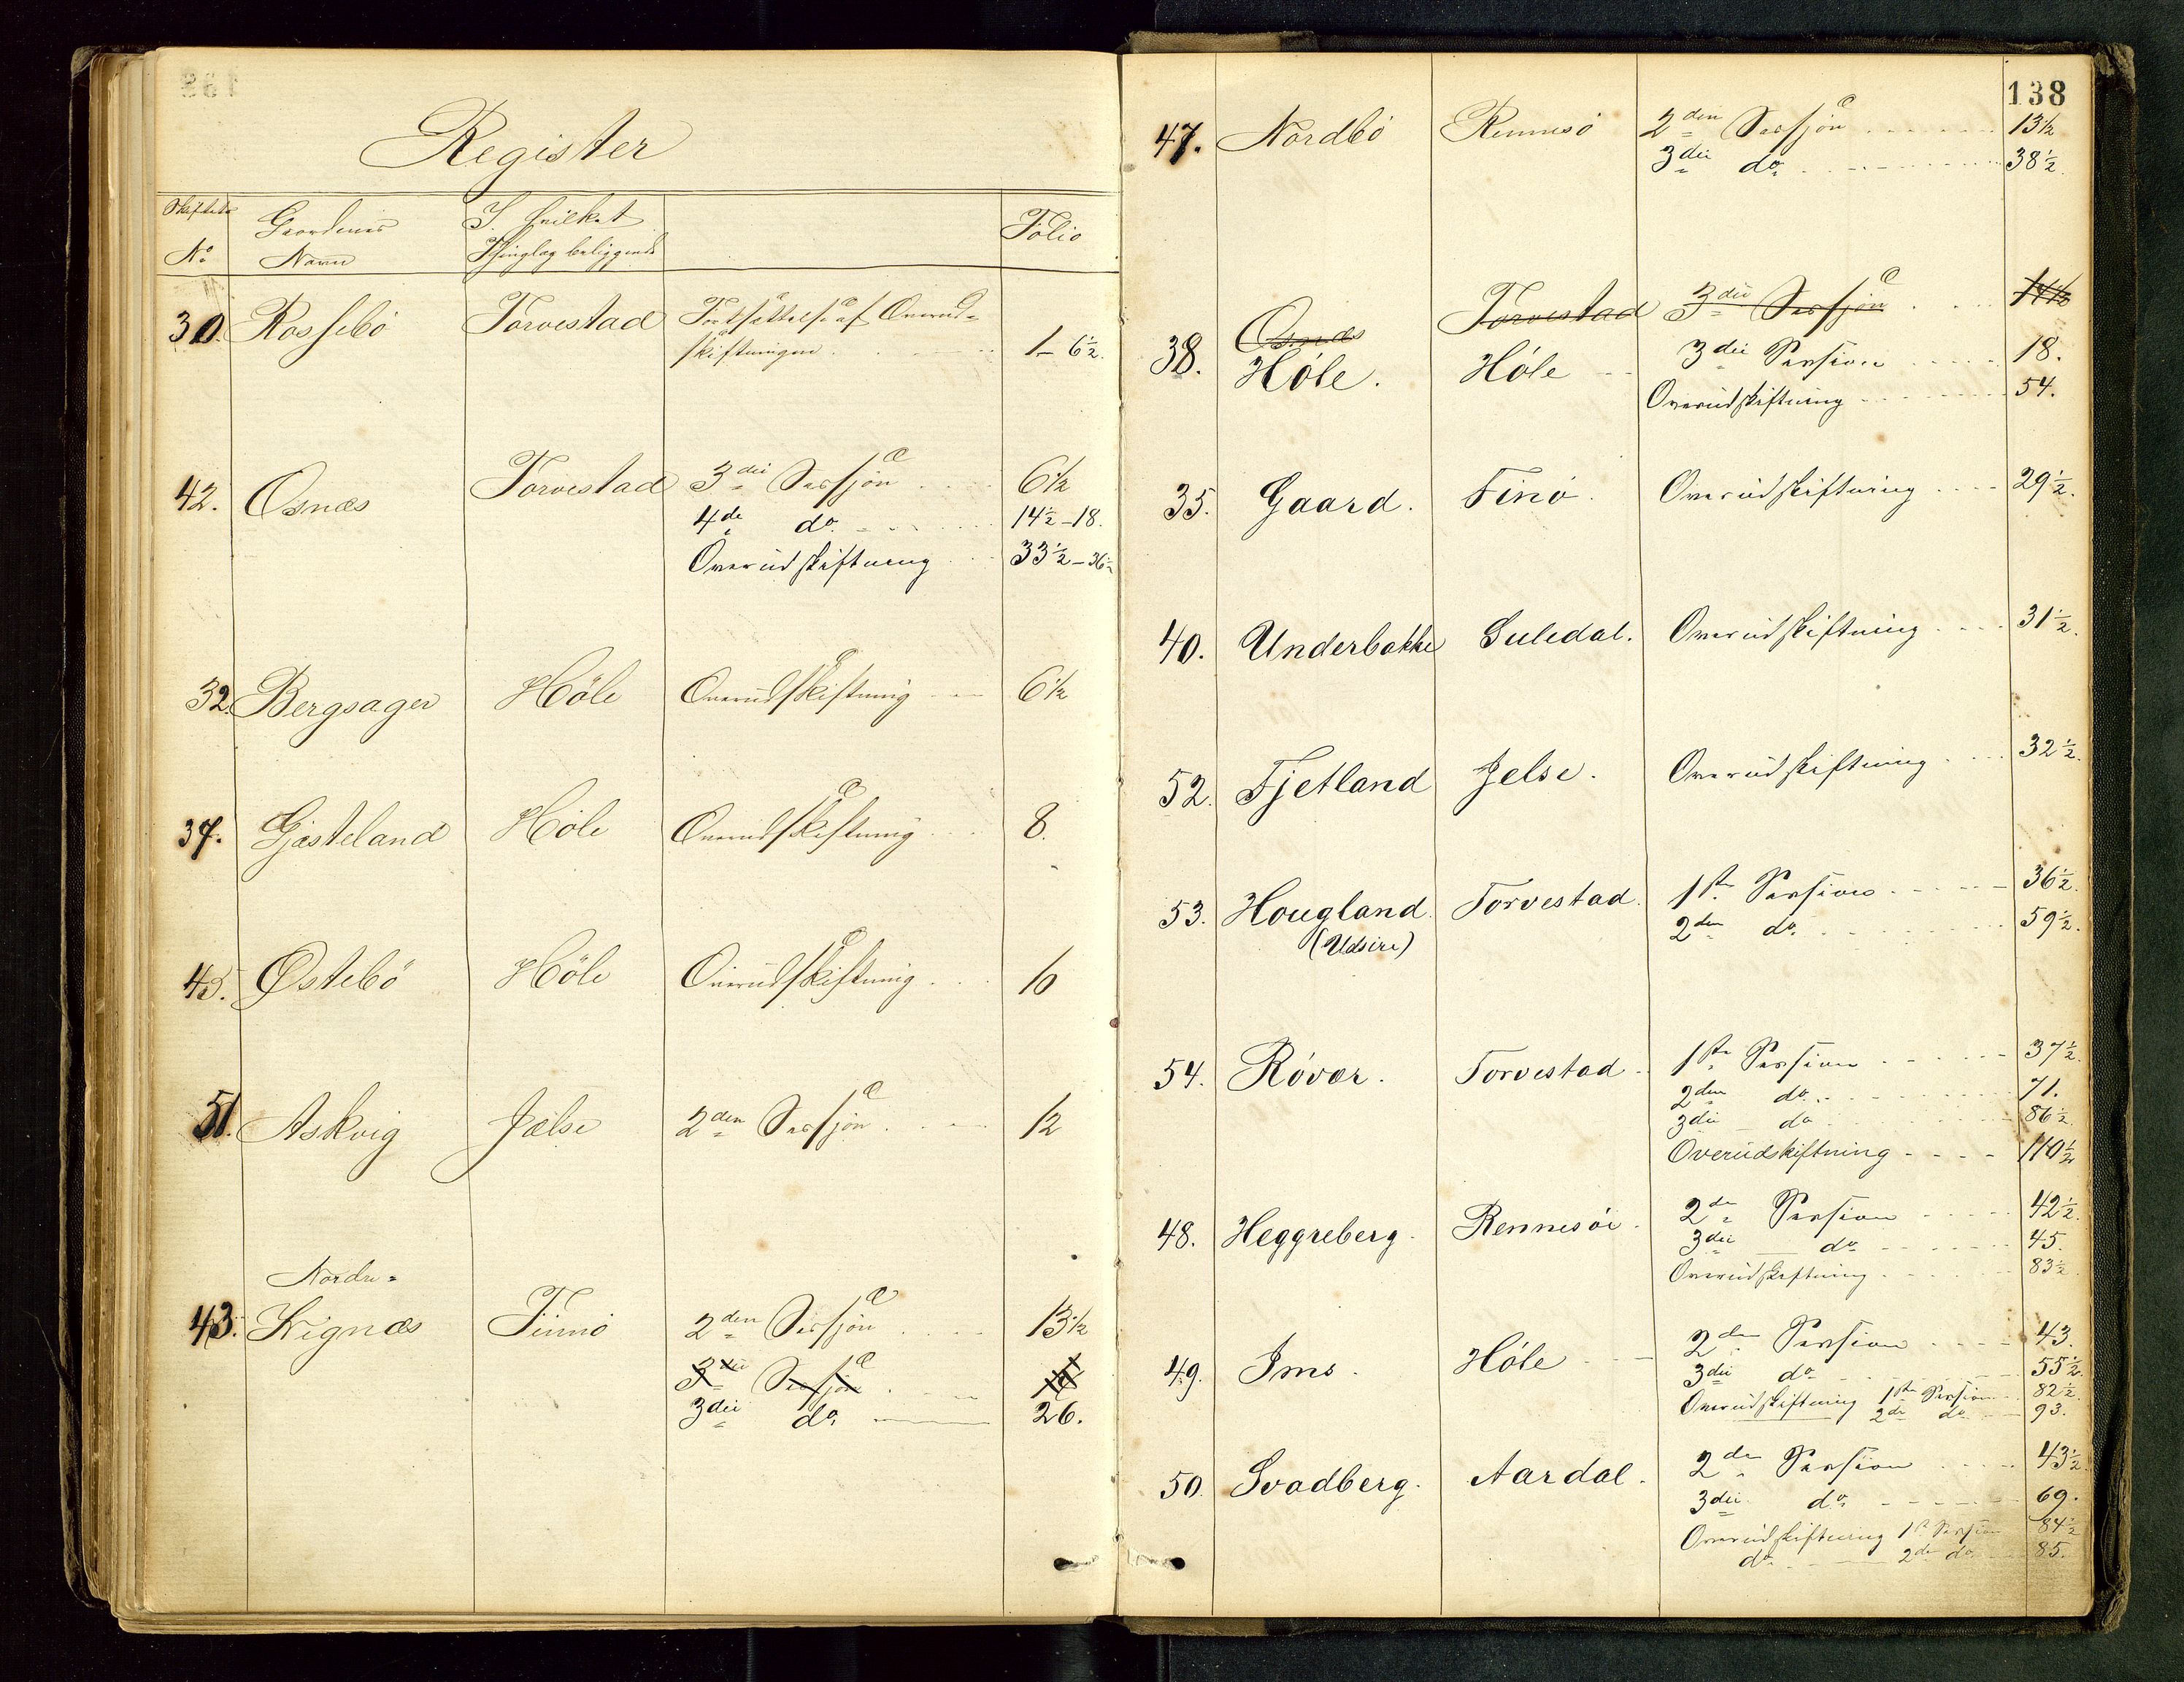 Register
Skiftets No Gaardenes Navn I hvilket Thinglag beliggende Folio
30. Rossebö Torvestad Fortsættelse af Overud-
skiftningen 1 - 6½.
42. Osnæs Torvestad 3die Sessjon 6½
4de do 14½-18.
Overudskiftning 33½-36½
32. Bergsager Höle Overudskiftning 6½
37. Gjæsteland Höle Overudskiftning 8.
45. Østebö Höle Overudskiftning 10
51. Askvig Jælse 2den Sessjon 12
Nordre-
43. Vignæs Finnö 2den Sessjon 13½
3die Sessjon
3die do 26.
138
47. Nordbö Rennesö 2den Sessjon 13½
3die do 38½.
Osnæs Torvestad 3die Sessjon 14½
38. Höle. Höle 3die Session 18.
Overudskiftning 54.
35. Gaard. Finö. Overudskiftning 29½.
40. Underbakke Suledal. Overudskiftning 31½.
52. Fjetland Jelse. Overudskiftning 32½.
53. Hougland. Torvestad. 1ste Session 36½.
(Udsire) 2den do. 59½.
54. Rövær. Torvestad. 1ste Session 37½.
2den do. 71.
3die do 86½.
Overudskiftning 110½
48. Heggreberg. Rennesöe. 2de Session 42½.
3die do 45.
Overudskiftning 83½
49. Ims. Höle 2den Session 43.
3die do 55½.
Overudskiftning 1ste Session 82½.
2de do 93.
50. Svadberg. Aardal. 2de Session 43½.
3die do 69.
Overudskiftning 1ste Session 84½
do 2den do 85.